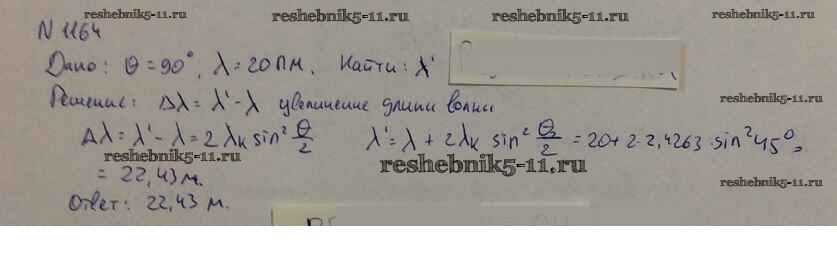 reshebnik5-11.ru reshebnik5-11.ru reshebnik5-11.ru
N 1164
Дано: θ = 90°, λ = 20 пм. Найти: λ'
Решение: Δλ = λ' - λ увеличение длины волны
reshebnik5-11.ru
Δλ = λ' - λ = 2 λк sin² θ/2 λ' = λ + 2 λк sin² θ/2 = 20 + 2·2,4263·sin² 45° =
reshebnik5-11.ru reshebnik5-11.ru
= 22,43 м.
reshebnik5-11.ru
Ответ: 22,43 м.